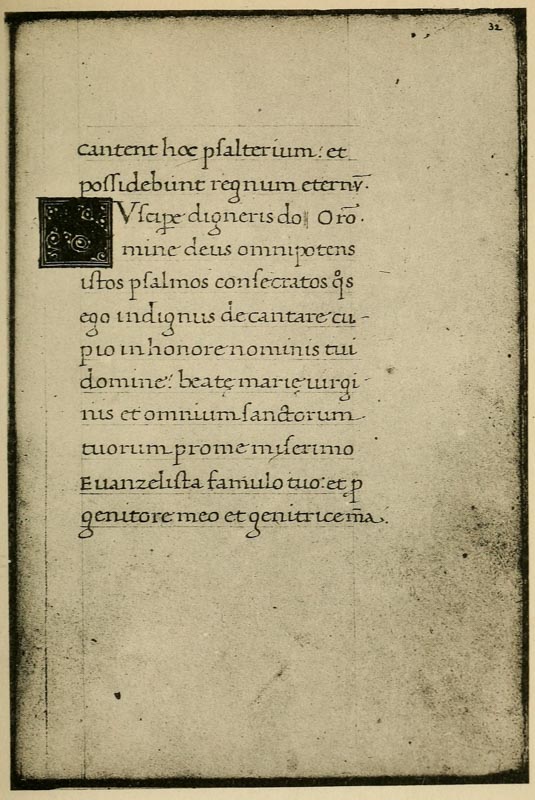 32
cantent hoc psalterium: et
possidebunt regnum eternū.
SVscipe digneris do Orō.
mine deus omnipotens
istos psalmos consecratos q̊s
ego indignus decantare cu-
pio in honore nominis tui
domine: beatę marię uirgi
nis et omnium sanctorum
tuorum pro me miserimo
Euanzelista famulo tuo: et ꝑ
genitore meo et genitrice m̄a.